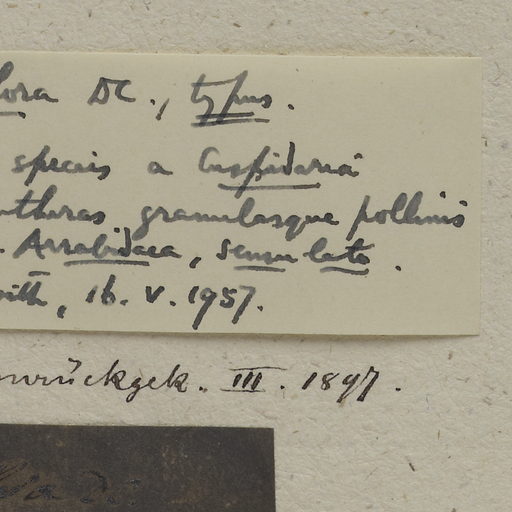 lora DC., typus.
species a Cuspidaria
antheras granulasque pollinis
Arrabidaea, sensu lato.
with, 16. V. 1957.
zurückgek. III. 1897.